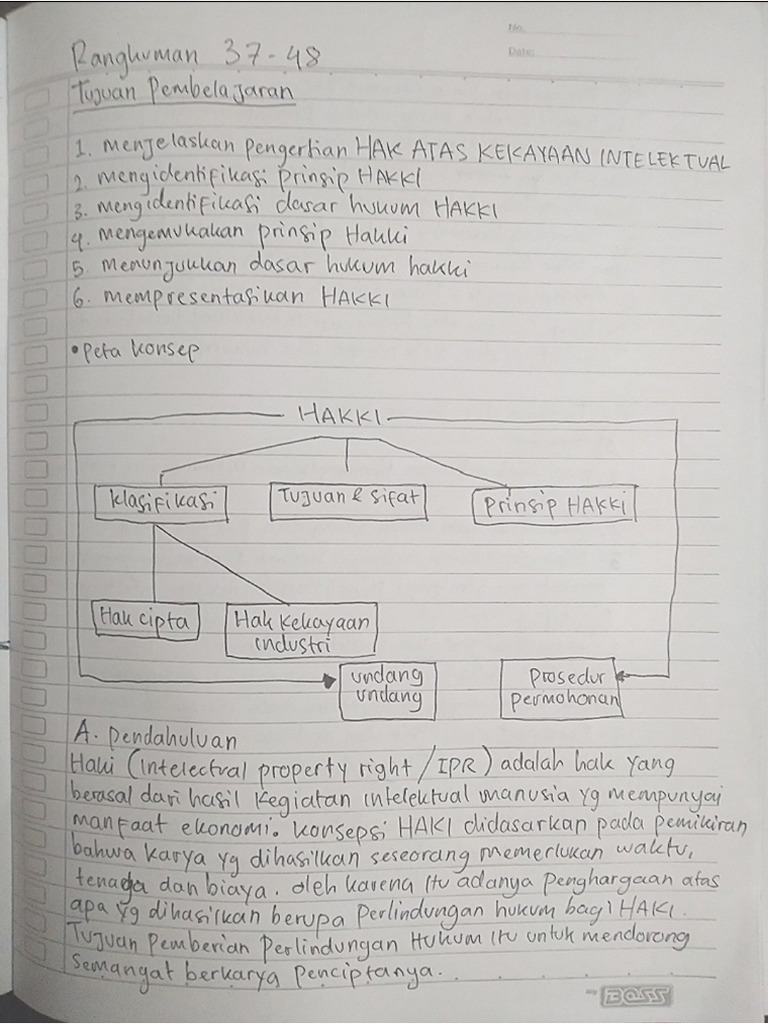 No.
Date:
Rangkuman 37-48
Tujuan Pembelajaran
1. menjelaskan pengertian HAK ATAS KEKAYAAN INTELEKTUAL
2. mengidentifikasi prinsip HAKKI
3. mengidentifikasi dasar hukum HAKKI
4. mengemukakan prinsip Hakki
5. menunjukkan dasar hukum hakki
6. mempresentasikan HAKKI
• Peta konsep
HAKKI
Klasifikasi
Tujuan & Sifat
Prinsip HAKKI
Hak cipta
Hak kekayaan
industri
undang
undang
Prosedur
permohonan
A. Pendahuluan
Haki (intelectual property right / IPR) adalah hak yang
berasal dari hasil kegiatan intelektual manusia yg mempunyai
manfaat ekonomi. konsepsi HAKI didasarkan pada pemikiran
bahwa karya yg dihasilkan seseorang memerlukan waktu,
tenaga dan biaya. oleh karena itu adanya penghargaan atas
apa yg dihasilkan berupa Perlindungan hukum bagi HAKI.
Tujuan Pemberian Perlindungan Hukum itu untuk mendorong
semangat berkarya Penciptanya.
BOSS